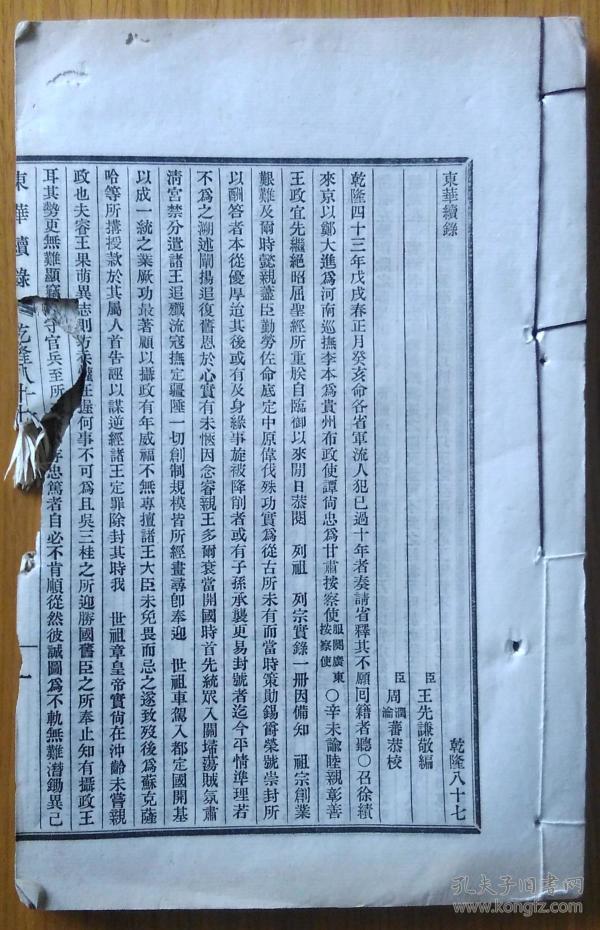 東華續錄 乾隆八十七
臣王先謙敬編
臣周潤蕃瀹蕃恭校
乾隆四十三年戊戌春正月癸亥命各省軍流人犯已過十年者奏請省釋其不願回籍者聽〇召徐績
來京以鄭大進爲河南巡撫李本爲貴州布政使譚尙忠爲甘肅按察使服闋廣東按察使〇辛未諭睦親彰善
王政宜先繼絕昭屈聖經所重朕自臨御以來閒日恭閱 列祖 列宗實錄一冊因備知 祖宗創業
艱難及爾時懿親藎臣勤勞佐命底定中原偉伐殊功實爲從古所未有而當時策勛錫爵榮號崇封所
以酬答者本從優厚迨其後或有及身緣事旋被降削者或有子孫承襲更易封號者迄今平情準理若
不爲之溯述闡揚追復舊恩於心實有未愜因念睿親王多爾袞當開國時首先統眾入關埽蕩賊氛肅
淸宮禁分遣諸王追殲流寇撫定疆陲一切創制規模皆所經畫尋卽奉迎 世祖車駕入都定國開基
以成一統之業厥功最著顧以攝政有年威福不無專擅諸王大臣未免畏而忌之遂致歿後爲蘇克薩
哈等所搆授款於其屬人首告誣以謀逆經諸王定罪除封其時我 世祖章皇帝實尙在沖齡未嘗親
政也夫睿王果萌異志則方兵權在握何事不可爲且吳三桂之所迎勝國舊臣之所奉止知有攝政王
耳其勢更無難顯竊 守官兵至所 存忠篤者自必不肯順從然彼誠圖爲不軌無難潛鋤異己
東華續錄 乾隆八十七 一
孔夫子旧书网
www.kongfz.com